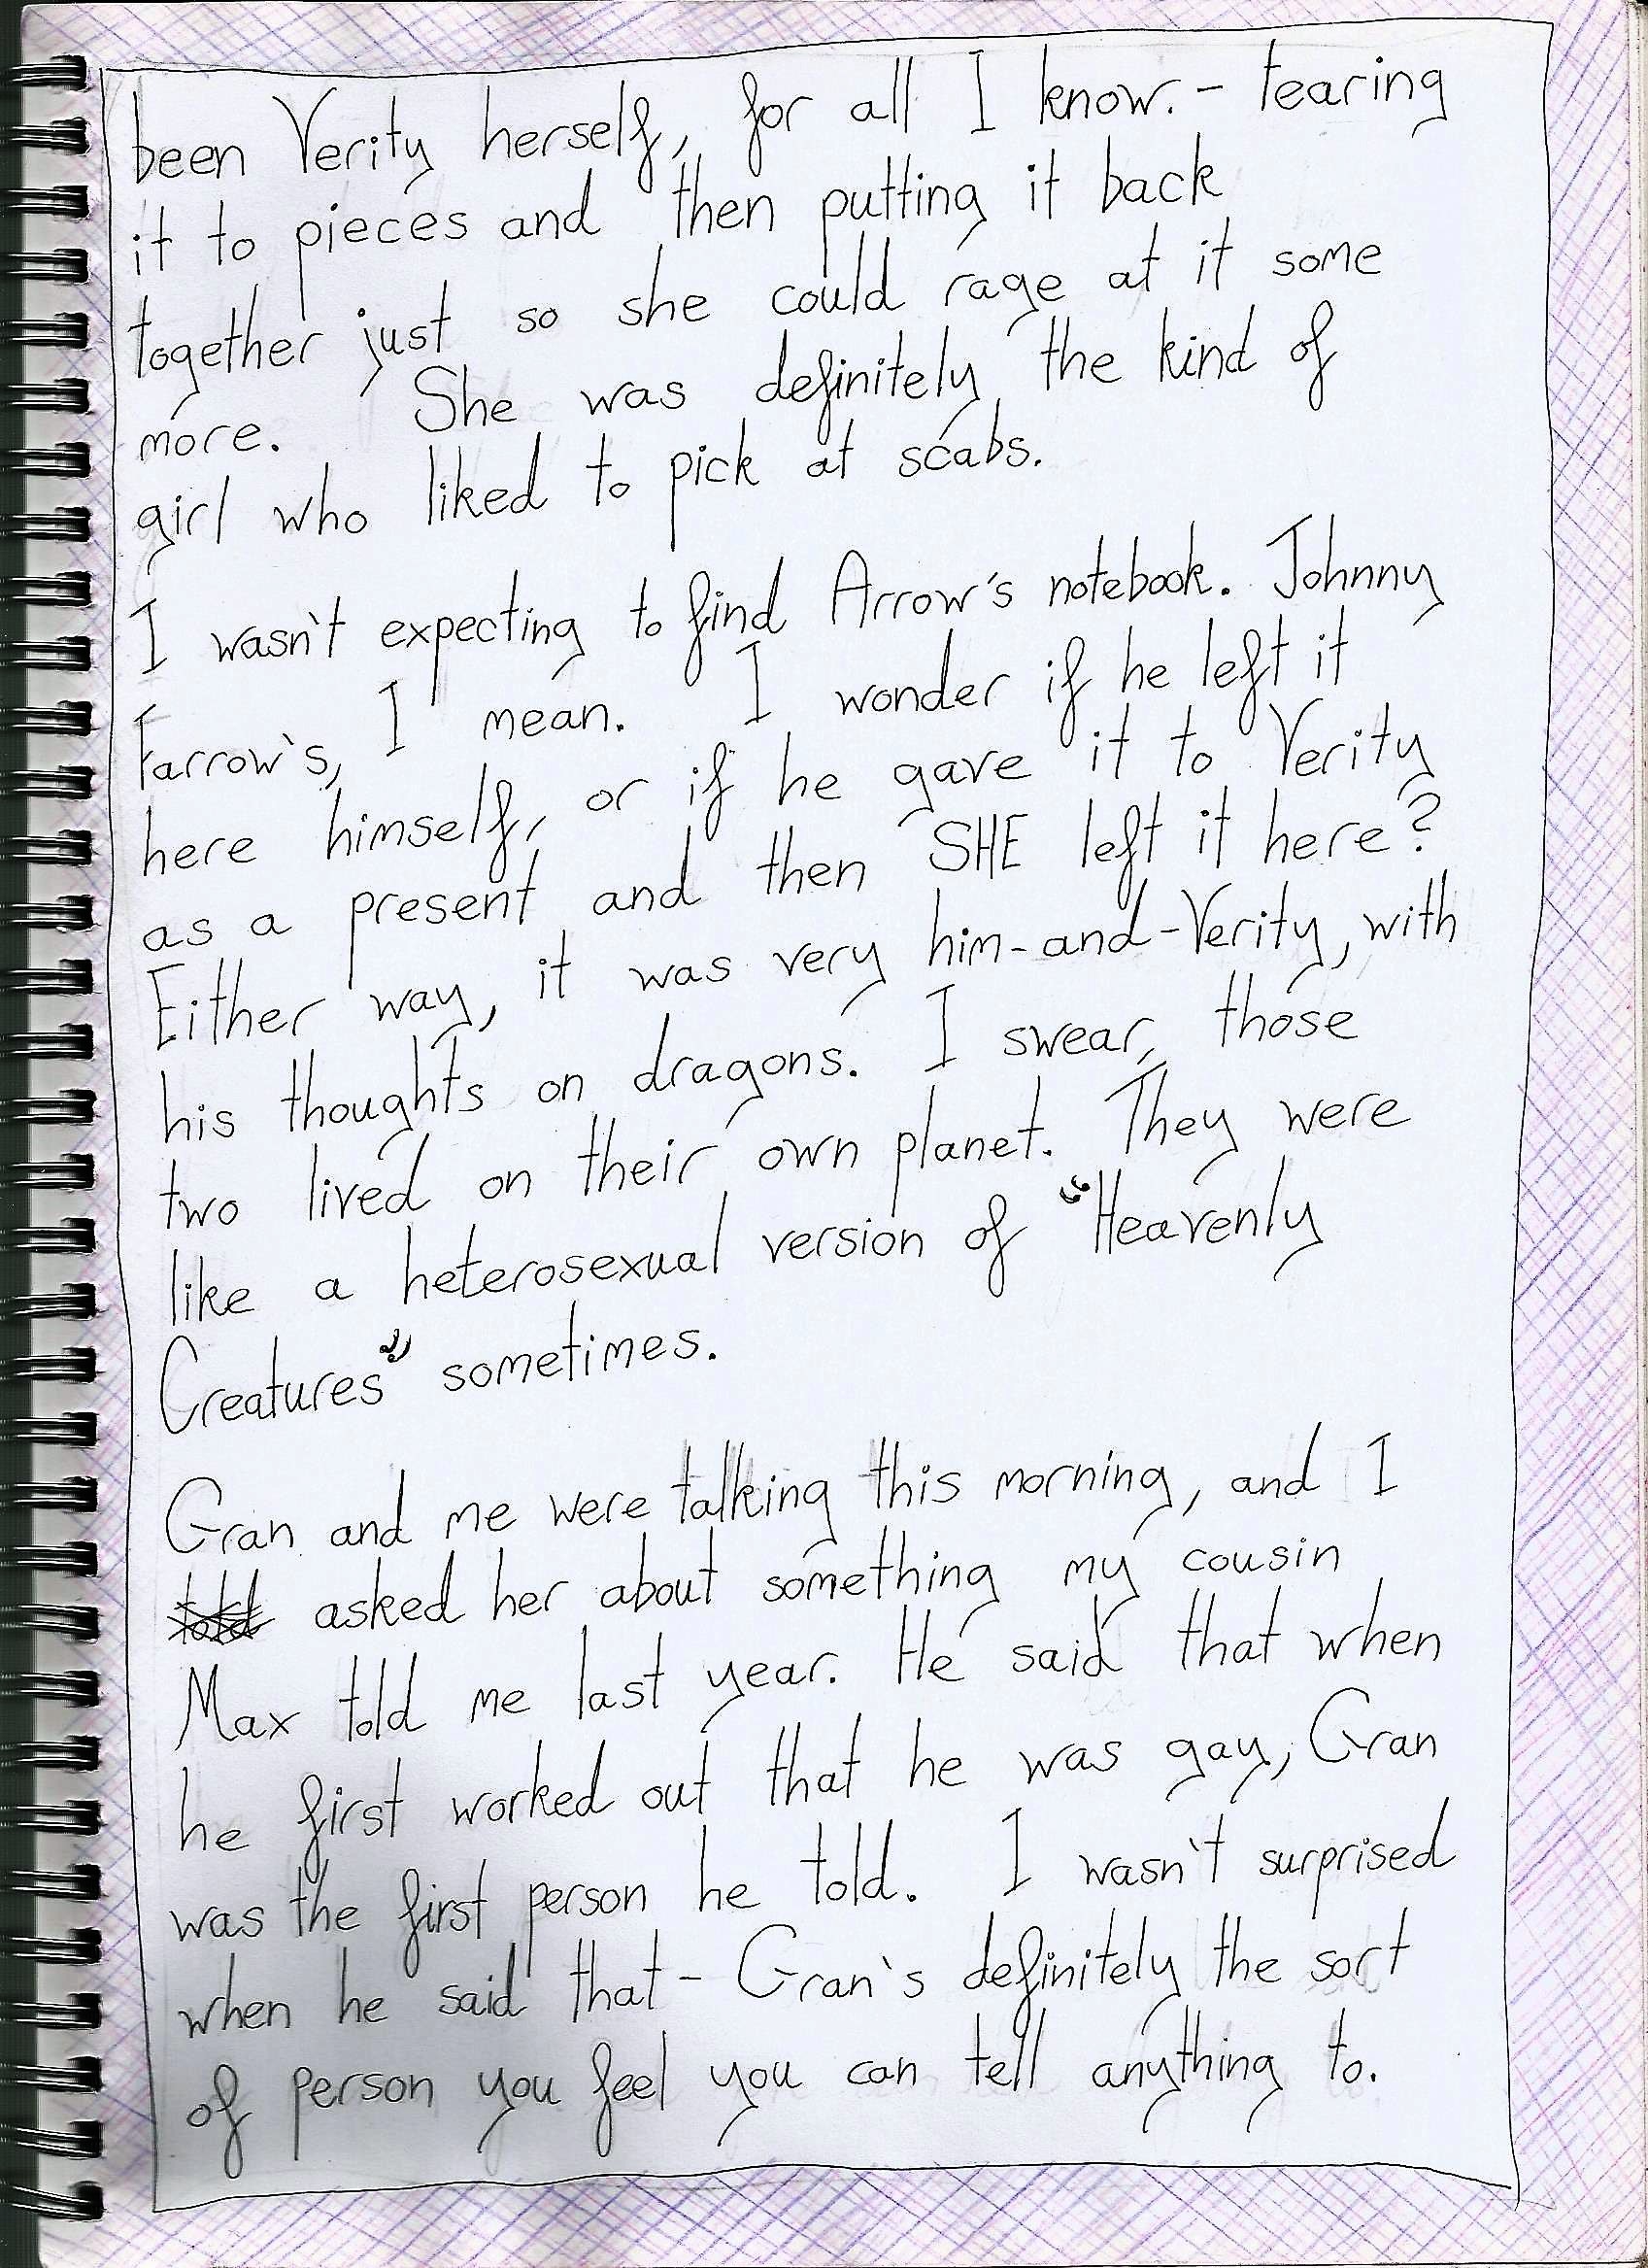 been Verity herself, for all I know. - tearing
it to pieces and then putting it back
together just so she could rage at it some
more. She was definitely the kind of
girl who liked to pick at scabs.
I wasn't expecting to find Arrow's notebook. Johnny
Farrow's, I mean. I wonder if he left it
here himself, or if he gave it to Verity
as a present and then SHE left it here?
Either way, it was very him-and-Verity, with
his thoughts on dragons. I swear, those
two lived on their own planet. They were
like a heterosexual version of "Heavenly
Creatures" sometimes.
Gran and me were talking this morning, and I
told asked her about something my cousin
Max told me last year. He said that when
he first worked out that he was gay, Gran
was the first person he told. I wasn't surprised
when he said that - Gran's definitely the sort
of person you feel you can tell anything to.